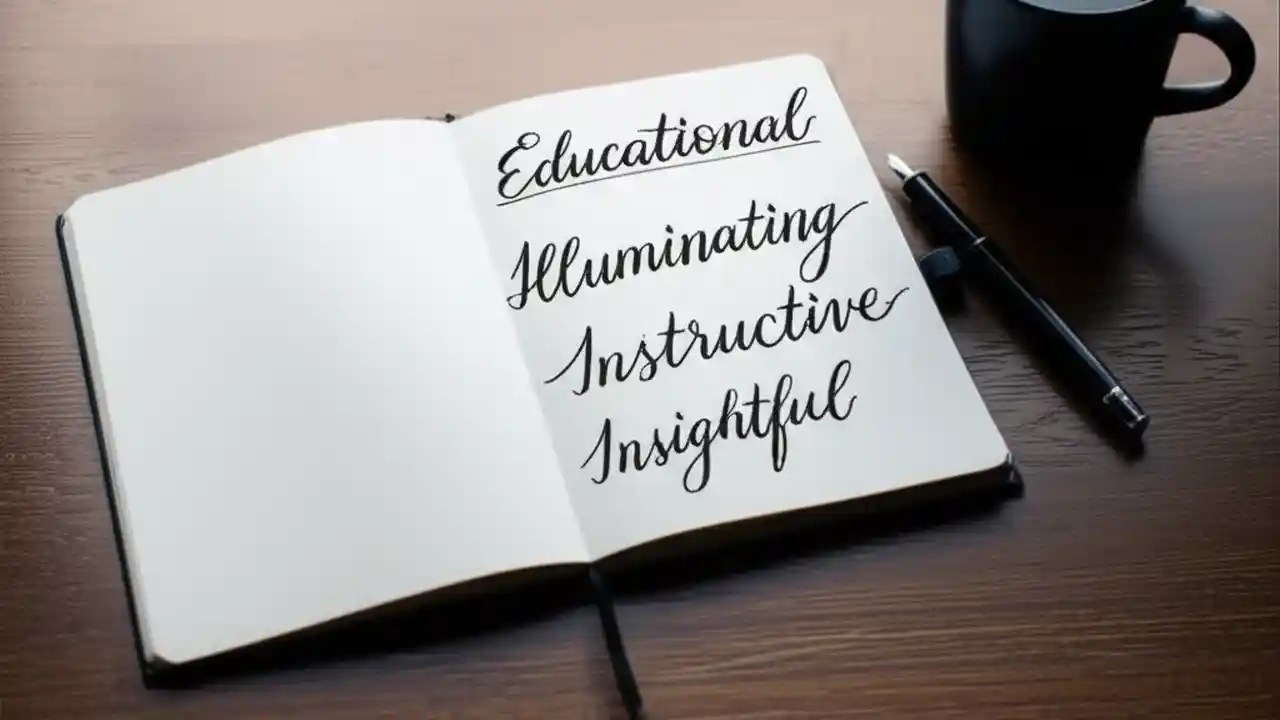 Educational
Illuminating
Instructive
Insightful